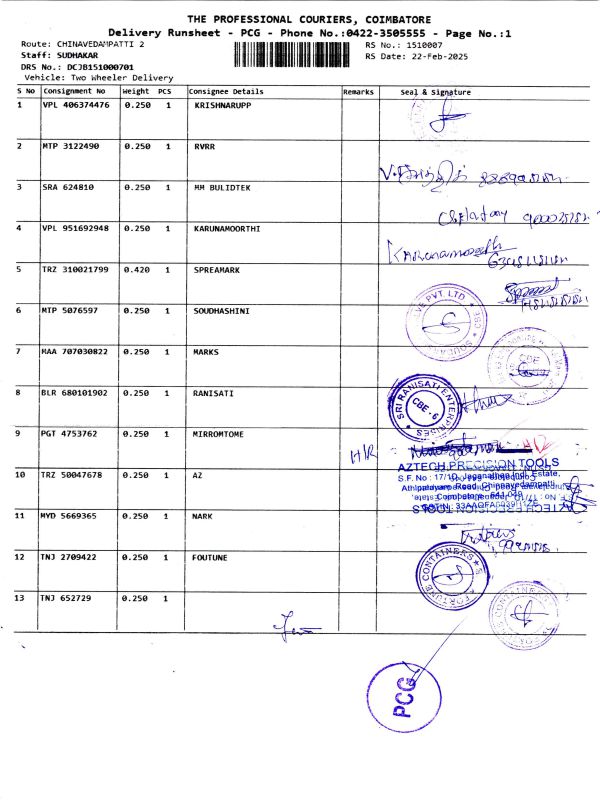 THE PROFESSIONAL COURIERS, COIMBATORE
Delivery Runsheet - PCG - Phone No.:0422-3505555 - Page No.:1
Route: CHINAVEDAMPATTI 2 RS No.: 1510007
Staff: SUDHAKAR RS Date: 22-Feb-2025
DRS No.: DCJB151000701
Vehicle: Two Wheeler Delivery
S No Consignment No Weight PCS Consignee Details Remarks Seal & Signature
1 VPL 406374476 0.250 1 KRISHNARUPP
2 MTP 3122490 0.250 1 RVRR
3 SRA 624810 0.250 1 MM BULIDTEK
4 VPL 951692948 0.250 1 KARUNAMOORTHI
Karunamoorthi
5 TRZ 310021799 0.420 1 SPREAMARK
6 MTP 5076597 0.250 1 SOUDHASHINI
PVT LTD
7 MAA 707030822 0.250 1 MARKS
CBE
8 BLR 680101902 0.250 1 RANISATI
SRI RANISATI ENTERPRISES
CBE - 6
9 PGT 4753762 0.250 1 MIRROMTOME
H/R
10 TRZ 50047678 0.250 1 AZ
AZTECH PRECISION TOOLS
S.F. No : 17/1D, Jeganathan Indl. Estate,
Athipalayam Road, Chinnavedampatti,
Coimbatore - 641 049
11 MYD 5669365 0.250 1 NARK
12 TNJ 2709422 0.250 1 FOUTUNE
FORTUNE CONTAINERS
13 TNJ 652729 0.250 1
PCG